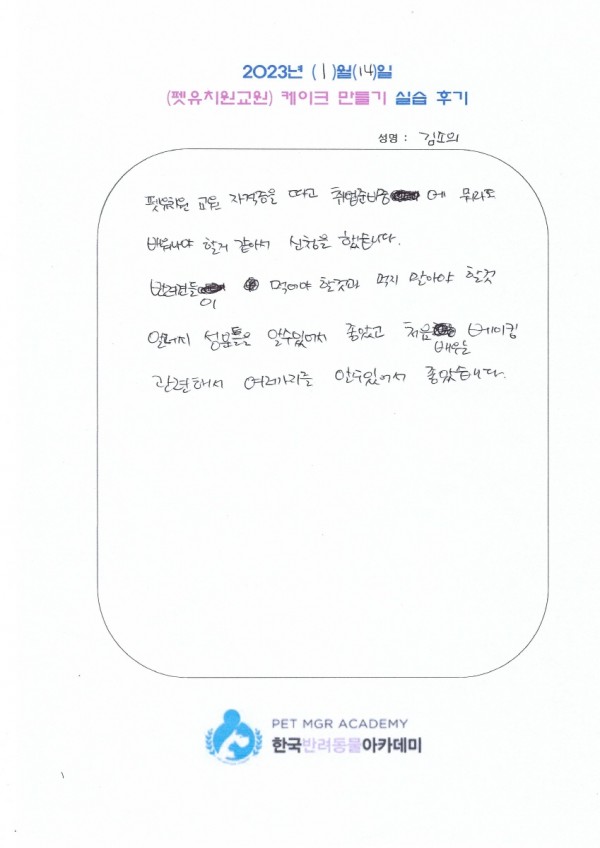 2023년 (1)월(14)일
(펫유치원교원) 케이크 만들기 실습 후기
성명 : 김소희
펫유치원 교원 자격증을 따고 취업준비중에 뭐라도
배워나야 할거 같아서 신청을 했습니다.
반려견들이 먹어야 할것과 먹지 말아야 할것
여러지 성분들을 알수있어서 좋았고 처음 배우는 베이킹
관련해서 여러가지를 알수있어서 좋았습니다.
PET MGR ACADEMY
한국반려동물아카데미